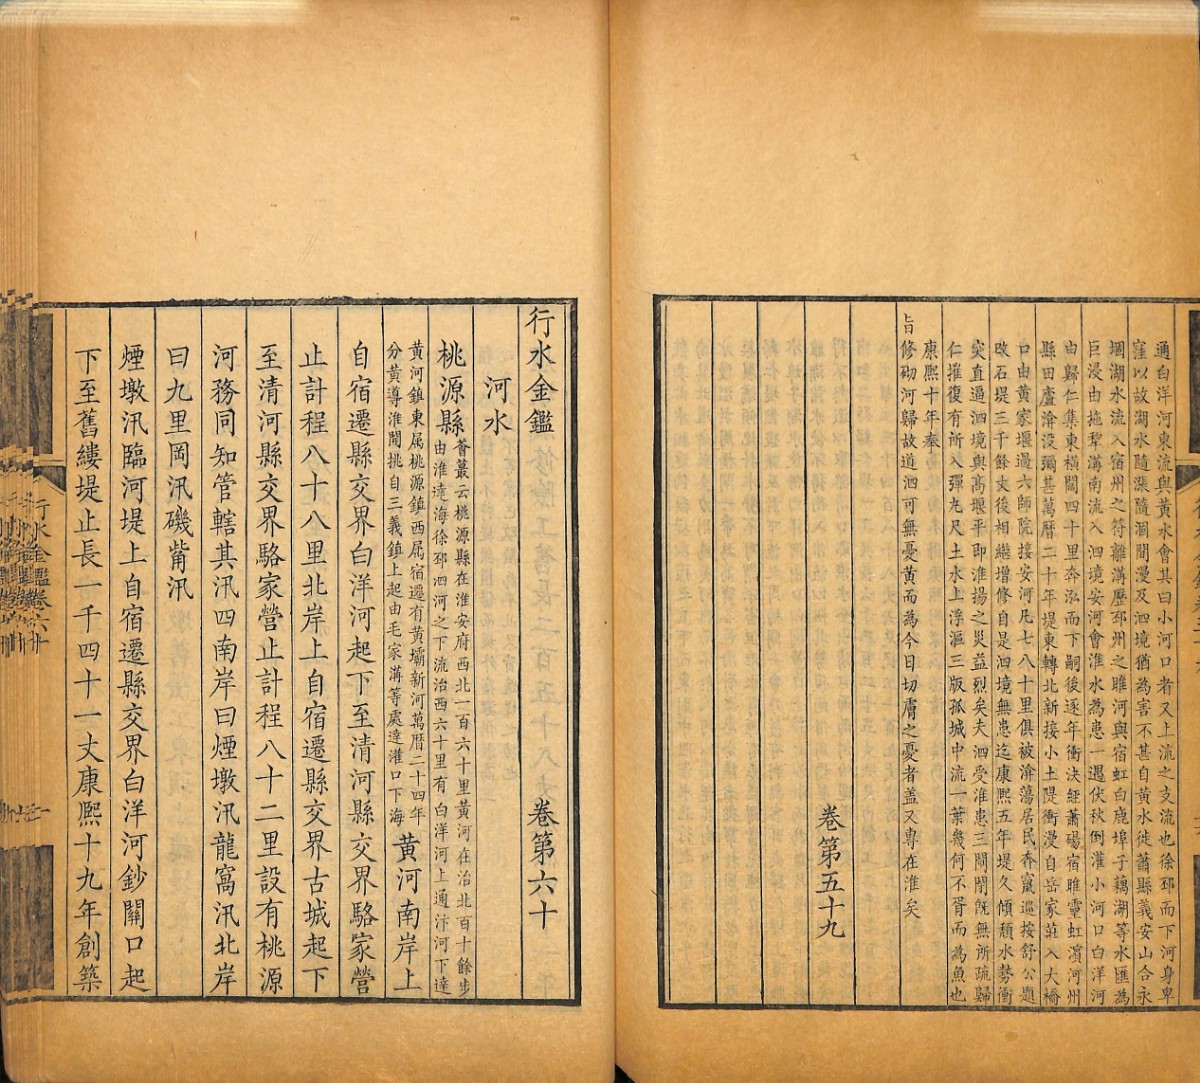 通白洋河東流與黃水會其曰小河口者又上流之支流也徐邳而下河身卑
窪以故湖水隨漲隨涸間漫及泗境猶為害不甚自黃水徙蕭縣義安山合永
堌湖水流入宿州之符離溝歷邳州之睢河與宿虹白鹿埠子藕湖等水匯為
巨浸由拖犂溝南流入泗境安河會淮水為患一遇伏秋倒灌小河口白洋河
由歸仁集東橫闊四十里奔泓而下嗣後逐年衝決經蕭碭宿睢靈虹濱河州
縣田廬渰沒彌甚萬曆二十年堤東轉北新接小土隄衝漫自岳家莊入大橋
口由黃家堰過六師院接安河凡七八十里俱被渰蕩居民昏窳巡按舒公題
改石堤三千餘丈後相繼增修自是泗境無患迄康熙五年堤久傾頹水勢衝
突直逼泗境與高堰平即淮揚之災益烈矣夫泗受淮患三關閘旣無所疏歸
仁摧復有所入彈丸尺土水上浮漚三版孤城中流一葉幾何不胥而為魚也
康熙十年奉
旨修砌河歸故道泗可無憂黃而為今日切膚之憂者盖又專在淮矣
卷第五十九
行水金鑑 卷第六十
河水
桃源縣
薈蕞云桃源縣在淮安府西北一百六十里黃河在治北百十餘步
由淮達海徐邳泗河之下流治西六十里有白洋河上通汴河下達
黃河鎮東属桃源鎮西屬宿遷有黃壩新河萬曆二十四年
分黃導淮開挑自三義鎮上起由毛家溝等處達灌口下海
黃河南岸上
自宿遷縣交界白洋河起下至清河縣交界駱家營
止計程八十八里北岸上自宿遷縣交界古城起下
至清河縣交界駱家營止計程八十二里設有桃源
河務同知管轄其汛四南岸曰煙墩汛龍窩汛北岸
曰九里岡汛磯觜汛
煙墩汛臨河堤上自宿遷縣交界白洋河鈔關口起
下至舊縷堤止長一千四十一丈康熙十九年創築
行水金鑑卷六十
一